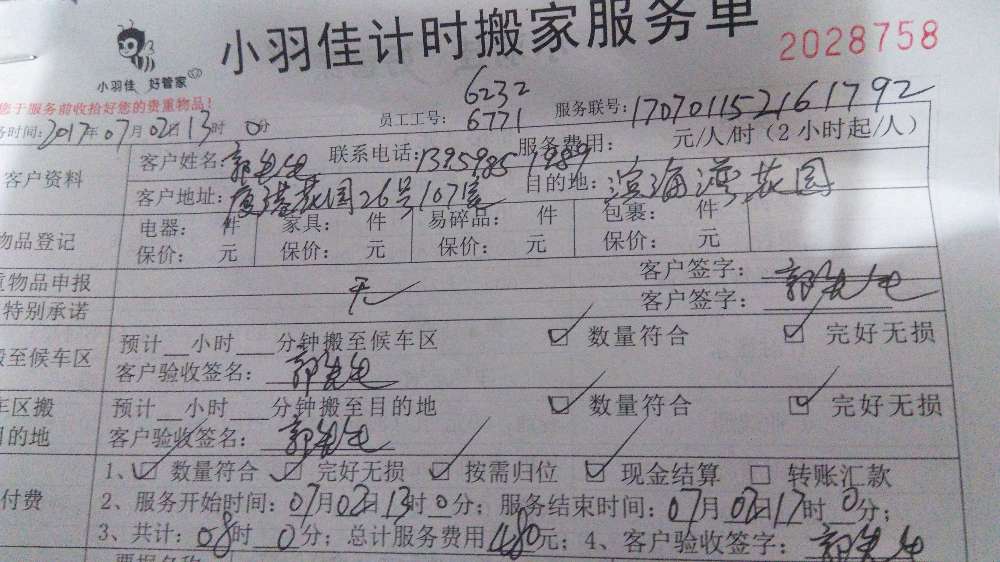 小羽佳计时搬家服务单
2028758
小羽佳 好管家
您于服务前收拾好您的贵重物品!
务时间:2017年07月02日13时0分 员工工号: 6232 6771 服务联号:17070115216 1792
客户资料 客户姓名:郭先生 联系电话:13959851989 服务费用: 元/人/时(2小时起/人)
客户地址:厦港花园26号107室 目的地:滨海湾花园
物品登记 电器: 件 家具: 件 易碎品: 件 包裹: 件
保价: 元 保价: 元 保价: 元 保价: 元
重物品申报 无 客户签字:郭先生
特别承诺 客户签字:
搬至候车区 预计__小时___分钟搬至候车区 ☑ 数量符合 ☑ 完好无损
客户验收签名:郭先生
车区搬 预计__小时___分钟搬至目的地 ☑ 数量符合 ☑ 完好无损
目的地 客户验收签名:郭先生
付费 1、☑ 数量符合 ☑ 完好无损 ☑ 按需归位 ☑ 现金结算 □ 转账汇款
2、服务开始时间:07月02日13时0分;服务结束时间:07月02日17时0分;
3、共计:08时0分;总计服务费用480元;4、客户验收签字:郭先生